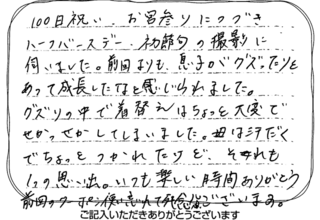 100日祝い、お宮参りにつづき
ハーフバースデー、初節句の撮影に
伺いました。前回よりも、息子がグズったりと
あって成長したなと感じられました。
グズリの中で着替えはちょっと大変で
せかせかしてしまいました。母は汗だく
でちょっとつかれたけど、それも
1つの思い出。いつも楽しい時間ありがとう
前回のクーポン使い忘れて残念でございます。
ご記入いただきありがとうございます